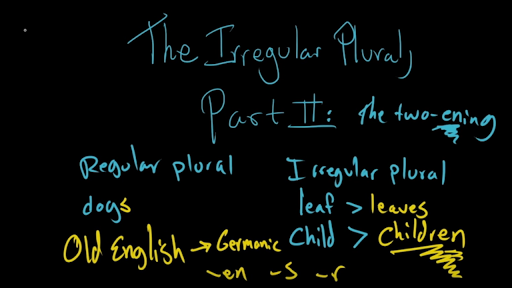 The Irregular Plural,
Part II: the two-ening
Regular plural Irregular plural
dogs leaf > leaves
Old English → Germanic Child > Children
-en -s -r